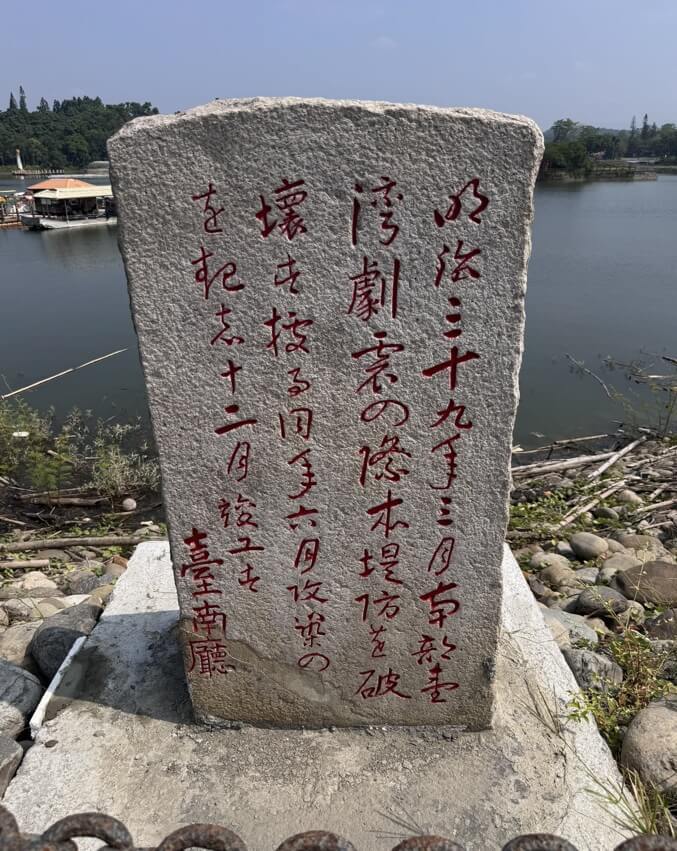 明治三十九年三月南部臺
灣劇震の際本堤防を破
壞す據る同年六月改築の
を起志十二月竣工す
臺南廳